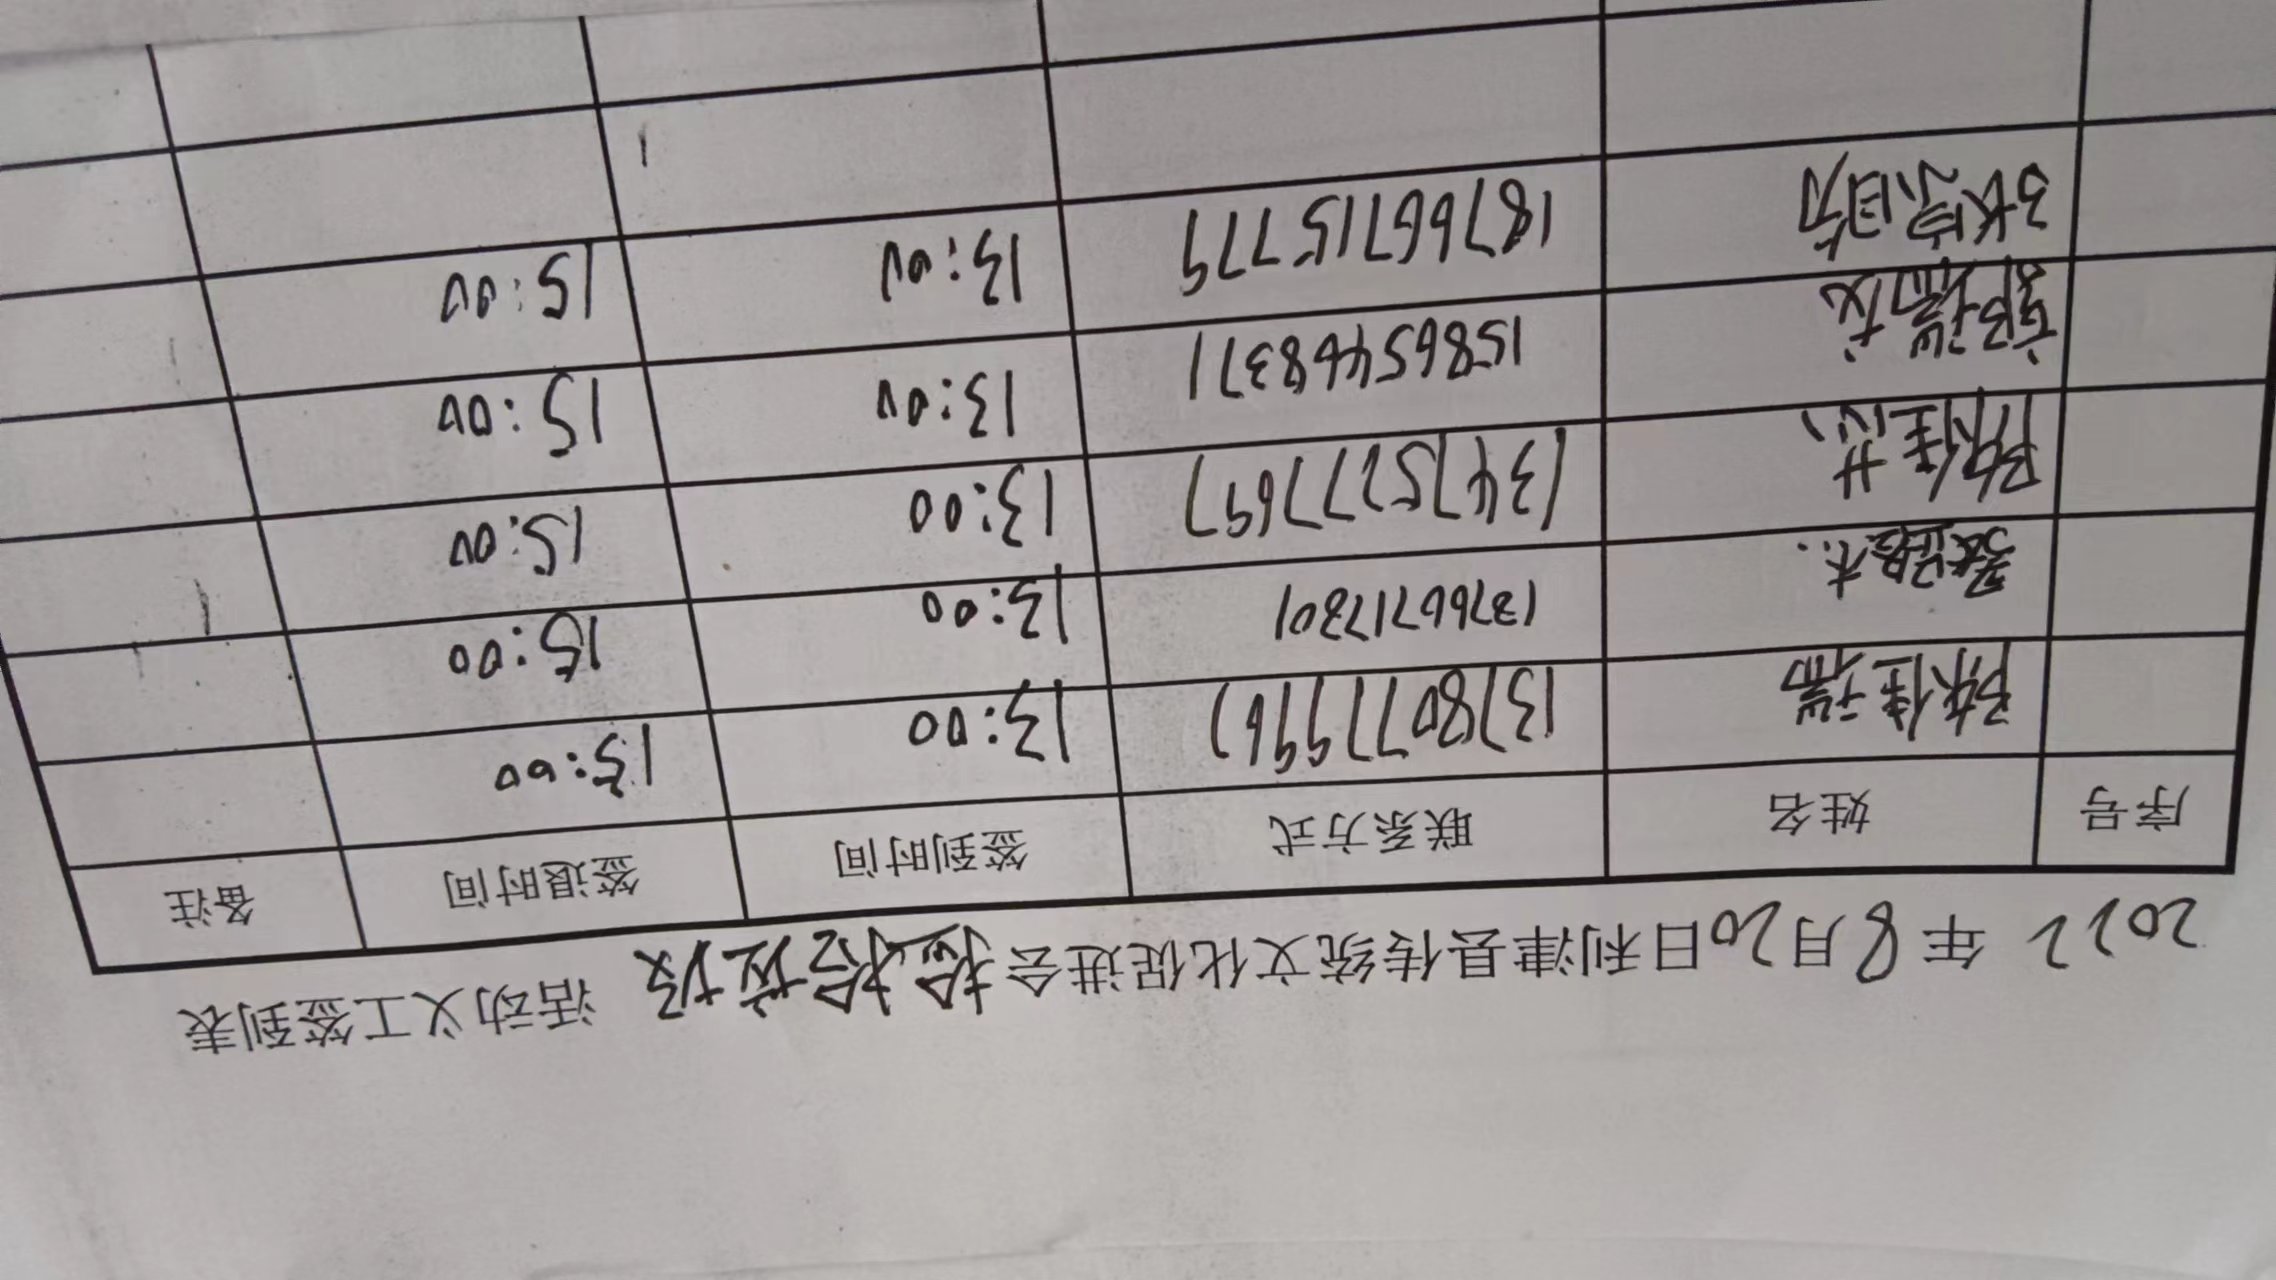 2022年8月20日利津县传统文化促进会捡拾垃圾活动义工签到表
序号 姓名 联系方式 签到时间 签退时间 备注
陈佳瑞 13780779967 13:00 15:00
13:00 15:00
陈佳慧 13475277697 13:00 15:00
15865468371 13:00 15:00
18766715779 13:00 15:00